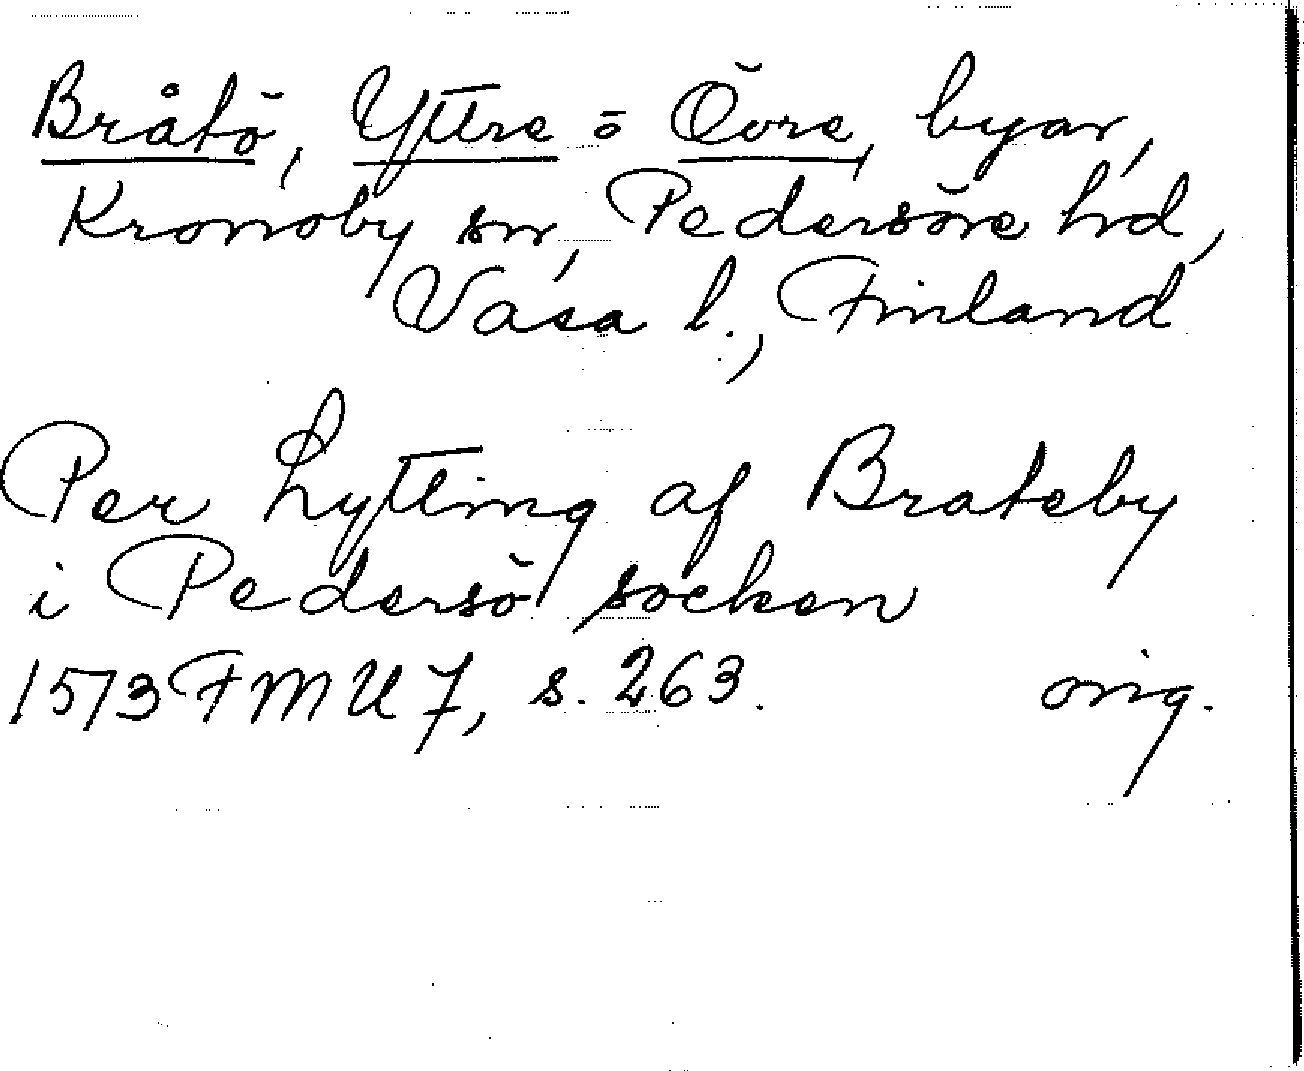 Bråtö, Yttre o Övre, byar,
Kronoby sn, Pedersöre hd,
Vasa l., Finland
Per Lytting af Brateby
i Pedersö socken
1573 FMU 7, s. 263. orig.